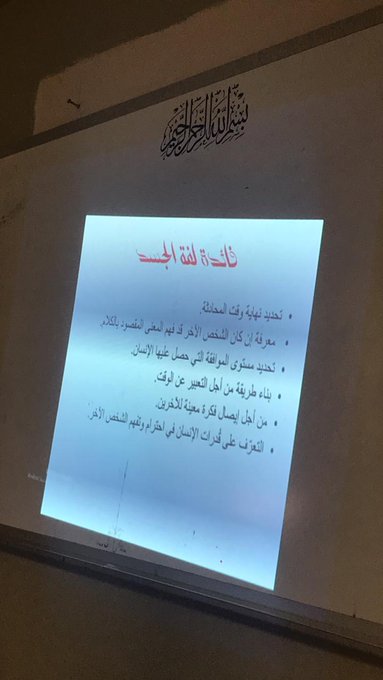 بسم الله الرحمن الرحيم
فائدة لغة الجسد
• تحديد نهاية وقت المحادثة.
• معرفة إن كان الشخص الآخر قد فهم المعنى المقصود بالكلام.
• تحديد مستوى الموافقة التي حصل عليها الإنسان.
• بناء طريقة من أجل التعبير عن الوقت.
• من أجل إيصال فكرة معينة للآخرين.
• التعرّف على قُدرات الإنسان في احترام وتفهم الشخص الآخر.